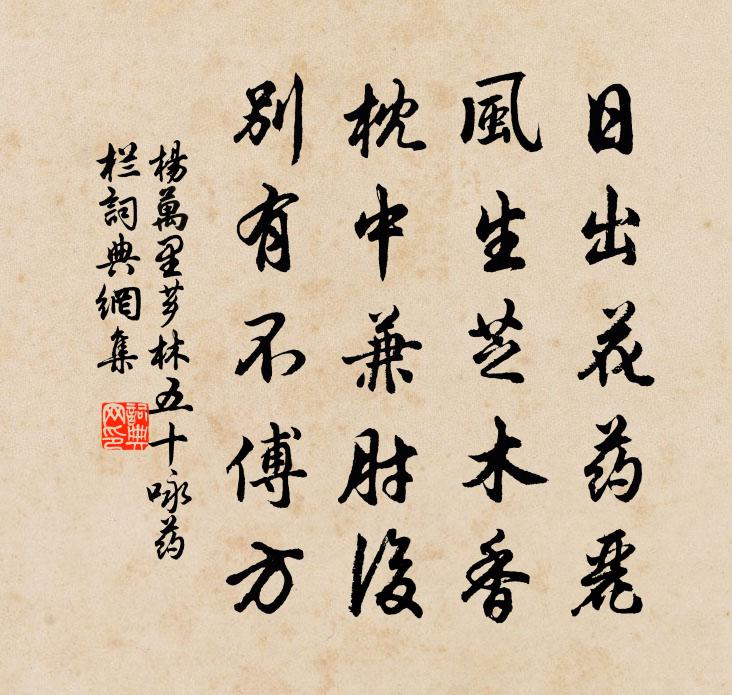 日出花药麗
風生芝木香
枕中兼肘後
別有不傅方
楊萬里芗林五十咏药
栏詞典網集
詞典网印